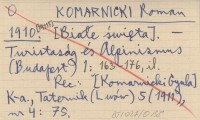 KOMARNICKI Roman
1910: [Białe święta]. —
Turistaság és Alpinizmus
(Budapest) 1: 163-176, il.
Rec.: [Komarnicki Gyula]
K-a., Taternik (Lwów) 5 (1911),
nr 4: 75.